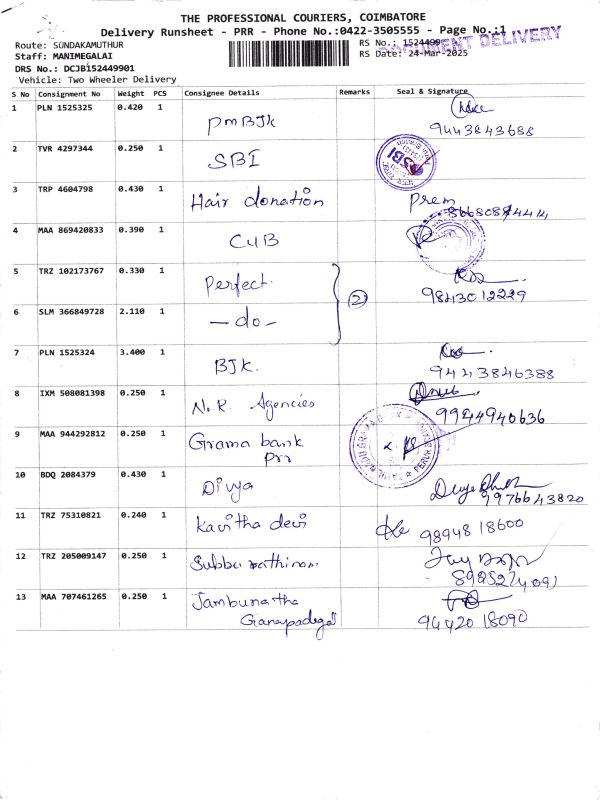 THE PROFESSIONAL COURIERS, COIMBATORE
Delivery Runsheet - PRR - Phone No.:0422-3505555 - Page No.:1
Route: SUNDAKAMUTHUR
RS No.: 1524499
DELIVERY
Staff: MANIMEGALAI
RS Date: 24-Mar-2025
DRS No.: DCJB152449901
Vehicle: Two Wheeler Delivery
S No Consignment No Weight PCS Consignee Details Remarks Seal & Signature
1 PLN 1525325 0.420 1 PMBJK
9443843688
2 TVR 4297344 0.250 1 SBI SBI
3 TRP 4604798 0.430 1 Hair donation Prem
4 MAA 869420833 0.390 1 CUB
5 TRZ 102173767 0.330 1 Perfect. 2 9843012229
6 SLM 366849728 2.110 1 -do-
7 PLN 1525324 3.400 1 BJK. 9443846388
8 IXM 508081398 0.250 1 N.R. Agencies 9944940636
9 MAA 944292812 0.250 1 Grama bank
Prr
10 BDQ 2084379 0.430 1 Divya 9976643820
11 TRZ 75310821 0.240 1 Kavitha devi 98948 18600
12 TRZ 205009147 0.250 1 Subbu rathinam
13 MAA 707461265 0.250 1 Jambunatha
Ganapadigal 94420 18090